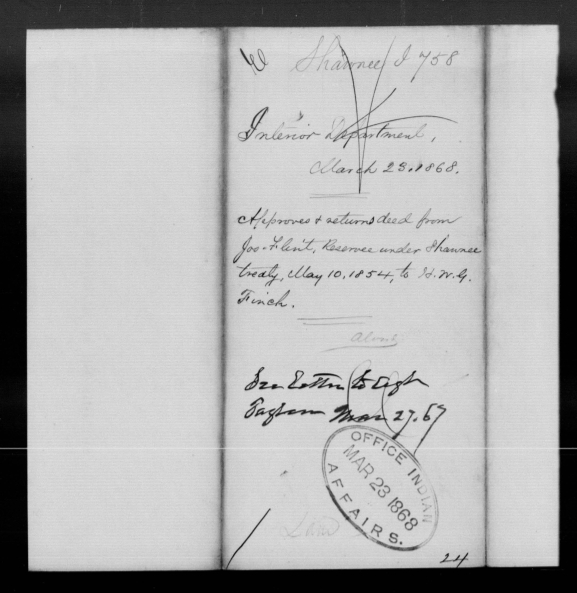 Shawnee I 758
Interior Department,
March 23, 1868.
Approves & returns deed from
Jos. Flint, Reservee under Shawnee
treaty, May 10, 1854, to H. W. G.
Finch.
See Letter to
Mar 27.67
OFFICE INDIAN
MAR 23 1868
AFFAIRS.
24